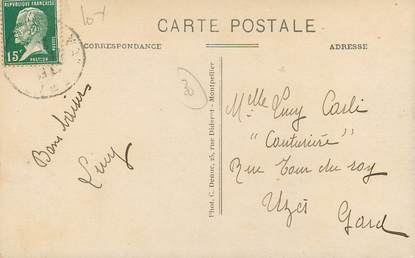 RÉPUBLIQUE FRANÇAISE
15c
POSTES
PASTEUR
CARTE POSTALE
CORRESPONDANCE
ADRESSE
Bons baisers
Lucy
Phot. C. Denoc, 15, rue Diderot - Montpellier
Melle Lucy Carli
"Couturière"
Rue Tour du roy
Uzès
Gard